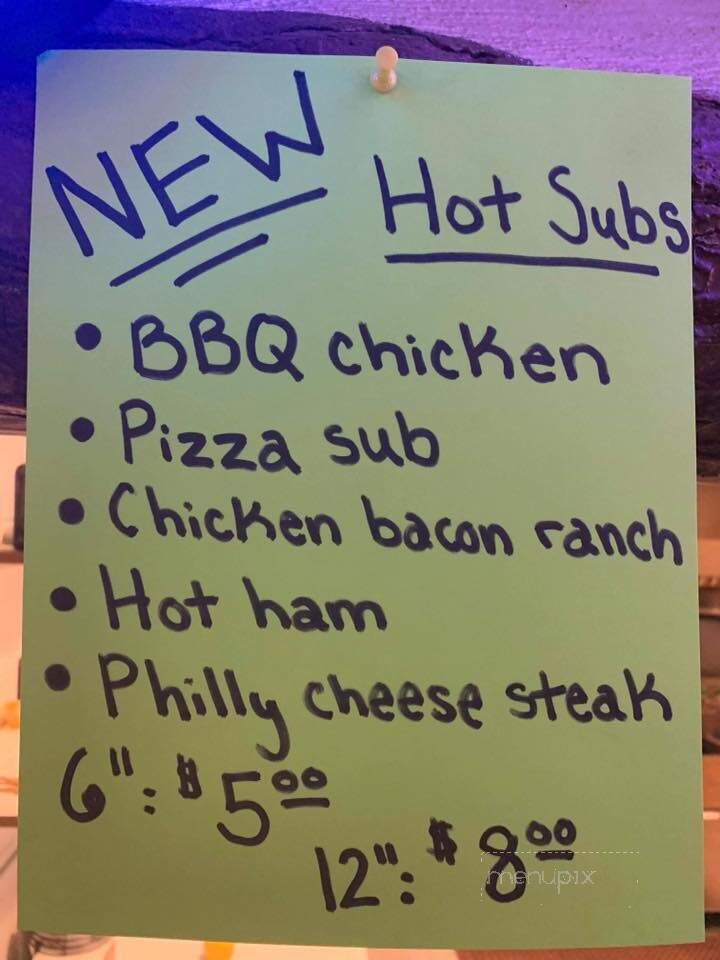 NEW
Hot Subs
• BBQ chicken
• Pizza sub
• Chicken bacon ranch
• Hot ham
• Philly cheese steak
6": $5.00
12": $8.00
menupix